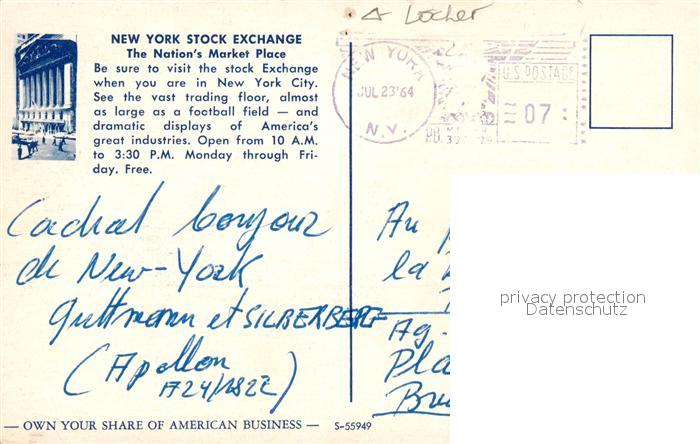 Locher
NEW YORK STOCK EXCHANGE
The Nation's Market Place
Be sure to visit the stock Exchange
when you are in New York City.
See the vast trading floor, almost
as large as a football field — and
dramatic displays of America's
great industries. Open from 10 A.M.
to 3:30 P.M. Monday through Fri-
day. Free.
NEW YORK
JUL 23 '64
N.Y.
U.S. POSTAGE
07
Cordial bonjour
de New-York
Guttmann et SILBERBERG
(Apollon
Au
la
Ag.
Pla
privacy protection
Datenschutz
— OWN YOUR SHARE OF AMERICAN BUSINESS — S-55949